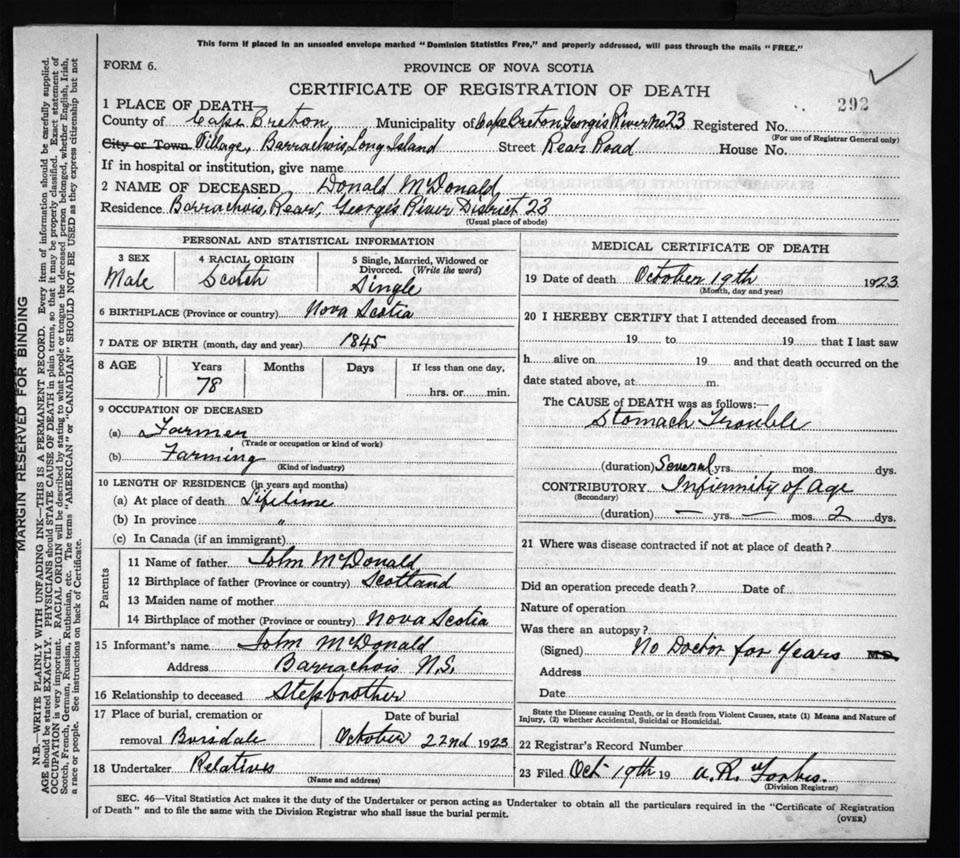 This form if placed in an unsealed envelope marked "Dominion Statistics Free," and properly addressed, will pass through the mails "FREE."
FORM 6.
PROVINCE OF NOVA SCOTIA
CERTIFICATE OF REGISTRATION OF DEATH
292
1 PLACE OF DEATH
County of Cape Breton Municipality of Cape Breton, Georges River No 23 Registered No.
(For use of Registrar General only)
City or Town Village, Barrachois, Long Island Street Rear Road House No.
If in hospital or institution, give name
2 NAME OF DECEASED Donald McDonald
Residence Barrachois, Rear, Georges River District 23
(Usual place of abode)
PERSONAL AND STATISTICAL INFORMATION
3 SEX Male
4 RACIAL ORIGIN Scotch
5 Single, Married, Widowed or Divorced. (Write the word) Single
6 BIRTHPLACE (Province or country) Nova Scotia
7 DATE OF BIRTH (month, day and year) 1845
8 AGE Years Months Days If less than one day,
78 hrs. or min.
9 OCCUPATION OF DECEASED
(a) Farmer
(Trade or occupation or kind of work)
(b) Farming
(Kind of industry)
10 LENGTH OF RESIDENCE (in years and months)
(a) At place of death Lifetime
(b) In province "
(c) In Canada (if an immigrant)
Parents
11 Name of father John McDonald
12 Birthplace of father (Province or country) Scotland
13 Maiden name of mother
14 Birthplace of mother (Province or country) Nova Scotia
15 Informant's name John McDonald
Address Barrachois N.S.
16 Relationship to deceased Stepbrother
17 Place of burial, cremation or removal Boisdale
Date of burial October 22nd 1923
18 Undertaker Relatives
(Name and address)
MEDICAL CERTIFICATE OF DEATH
19 Date of death October 19th 1923
(Month, day and year)
20 I HEREBY CERTIFY that I attended deceased from
19 to 19 that I last saw
h alive on 19 and that death occurred on the
date stated above, at m.
The CAUSE of DEATH was as follows:—
Stomach Trouble
(duration) Several yrs. mos. ds.
CONTRIBUTORY Infirmity of Age
(Secondary)
(duration) — yrs. — mos. 2 dys.
21 Where was disease contracted if not at place of death?
Did an operation precede death? Date of
Nature of operation
Was there an autopsy?
(Signed) No Doctor for Years M.D.
Address
Date
State the Disease causing Death, or in death from Violent Causes, state (1) Means and Nature of
Injury, (2) whether Accidental, Suicidal or Homicidal.
22 Registrar's Record Number
23 Filed Oct 19th 19 A. R. Forbes.
(Division Registrar)
SEC. 46—Vital Statistics Act makes it the duty of the Undertaker or person acting as Undertaker to obtain all the particulars required in the "Certificate of Registration
of Death" and to file the same with the Division Registrar who shall issue the burial permit.
(OVER)
MARGIN RESERVED FOR BINDING
N.B.—WRITE PLAINLY WITH UNFADING INK—THIS IS A PERMANENT RECORD. Every item of information should be carefully supplied.
AGE should be stated EXACTLY. PHYSICIANS should STATE CAUSE OF DEATH in plain terms, so that it may be properly classified. Exact statement of
OCCUPATION is very important. RACIAL ORIGIN will be described by stating to what people or tongue the deceased person belonged, whether English, Irish,
Scotch, French, German, Russian, Ruthenian, etc. The terms "AMERICAN" or "CANADIAN" SHOULD NOT BE USED as they express citizenship but not
a race or people. See instructions on back of Certificate.